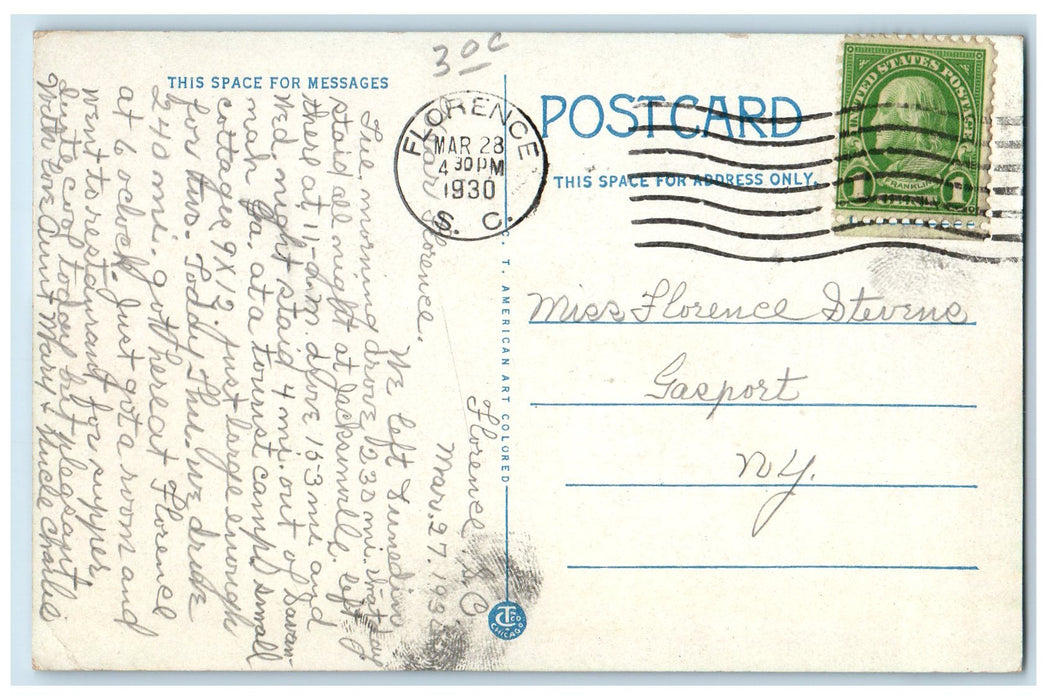 30¢
THIS SPACE FOR MESSAGES
POSTCARD
THIS SPACE FOR ADDRESS ONLY.
FLORENCE
MAR 28
4 30 PM
1930
S. C.
UNITED STATES POSTAGE
FRANKLIN
1 1
C. T. AMERICAN ART COLORED
CT CO CHICAGO
Florence S C.
Mar. 27. 1930
Dear Florence.
We left Dunedin
Tue. morning drove 233 mi. that day
staid all night at Jacksonville. left
there at 11-a.m. drove 153 mi and
Wed. night staid 4 mi. out of Savan-
nah Ga. at a tourist camp. small
cottages 9x12. just large enough
for two. Today Thu. we drove
240 mi. got here at Florence
at 6 oclock. Just got a room and
went to restaurant for supper
quite cool today but pleasant
With love Aunt Mary & Uncle Charlie
Miss Florence Stevens
Gasport
N.Y.